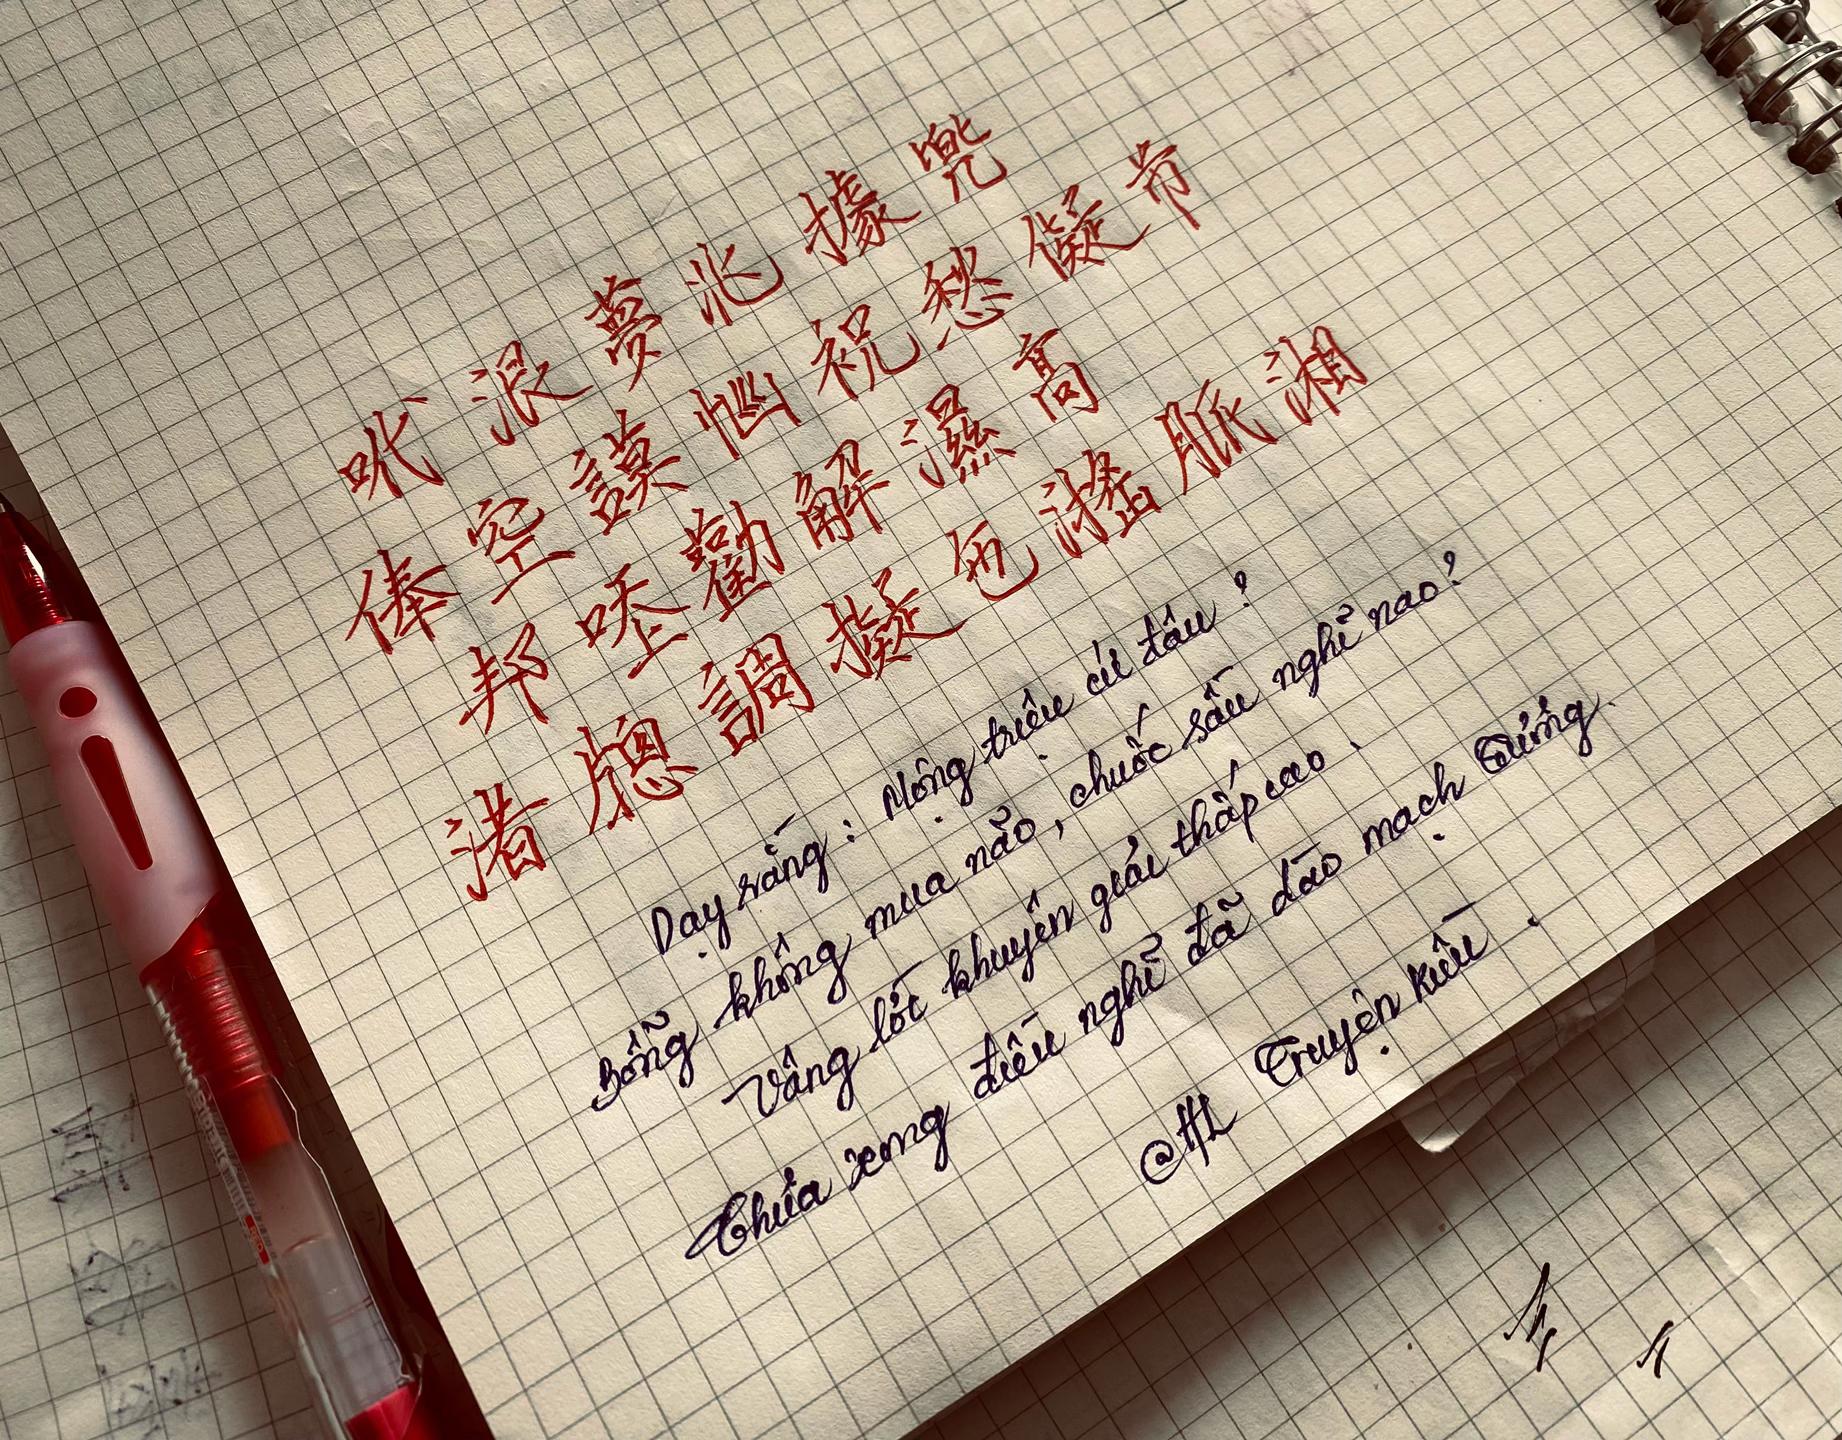 𠰺浪夢兆據兜
俸空謨惱祝愁儗芇
邦𠳒勸解濕高
渚牕調擬㐌脈湘
Dạy rằng : Mộng triệu cứ đâu ?
Bỗng không mua não, chuốc sầu nghĩ nao?
Vâng lời khuyên giải thấp cao.
Chưa xong điều nghĩ đã dào mạch Tương.
@HL Truyện Kiều.